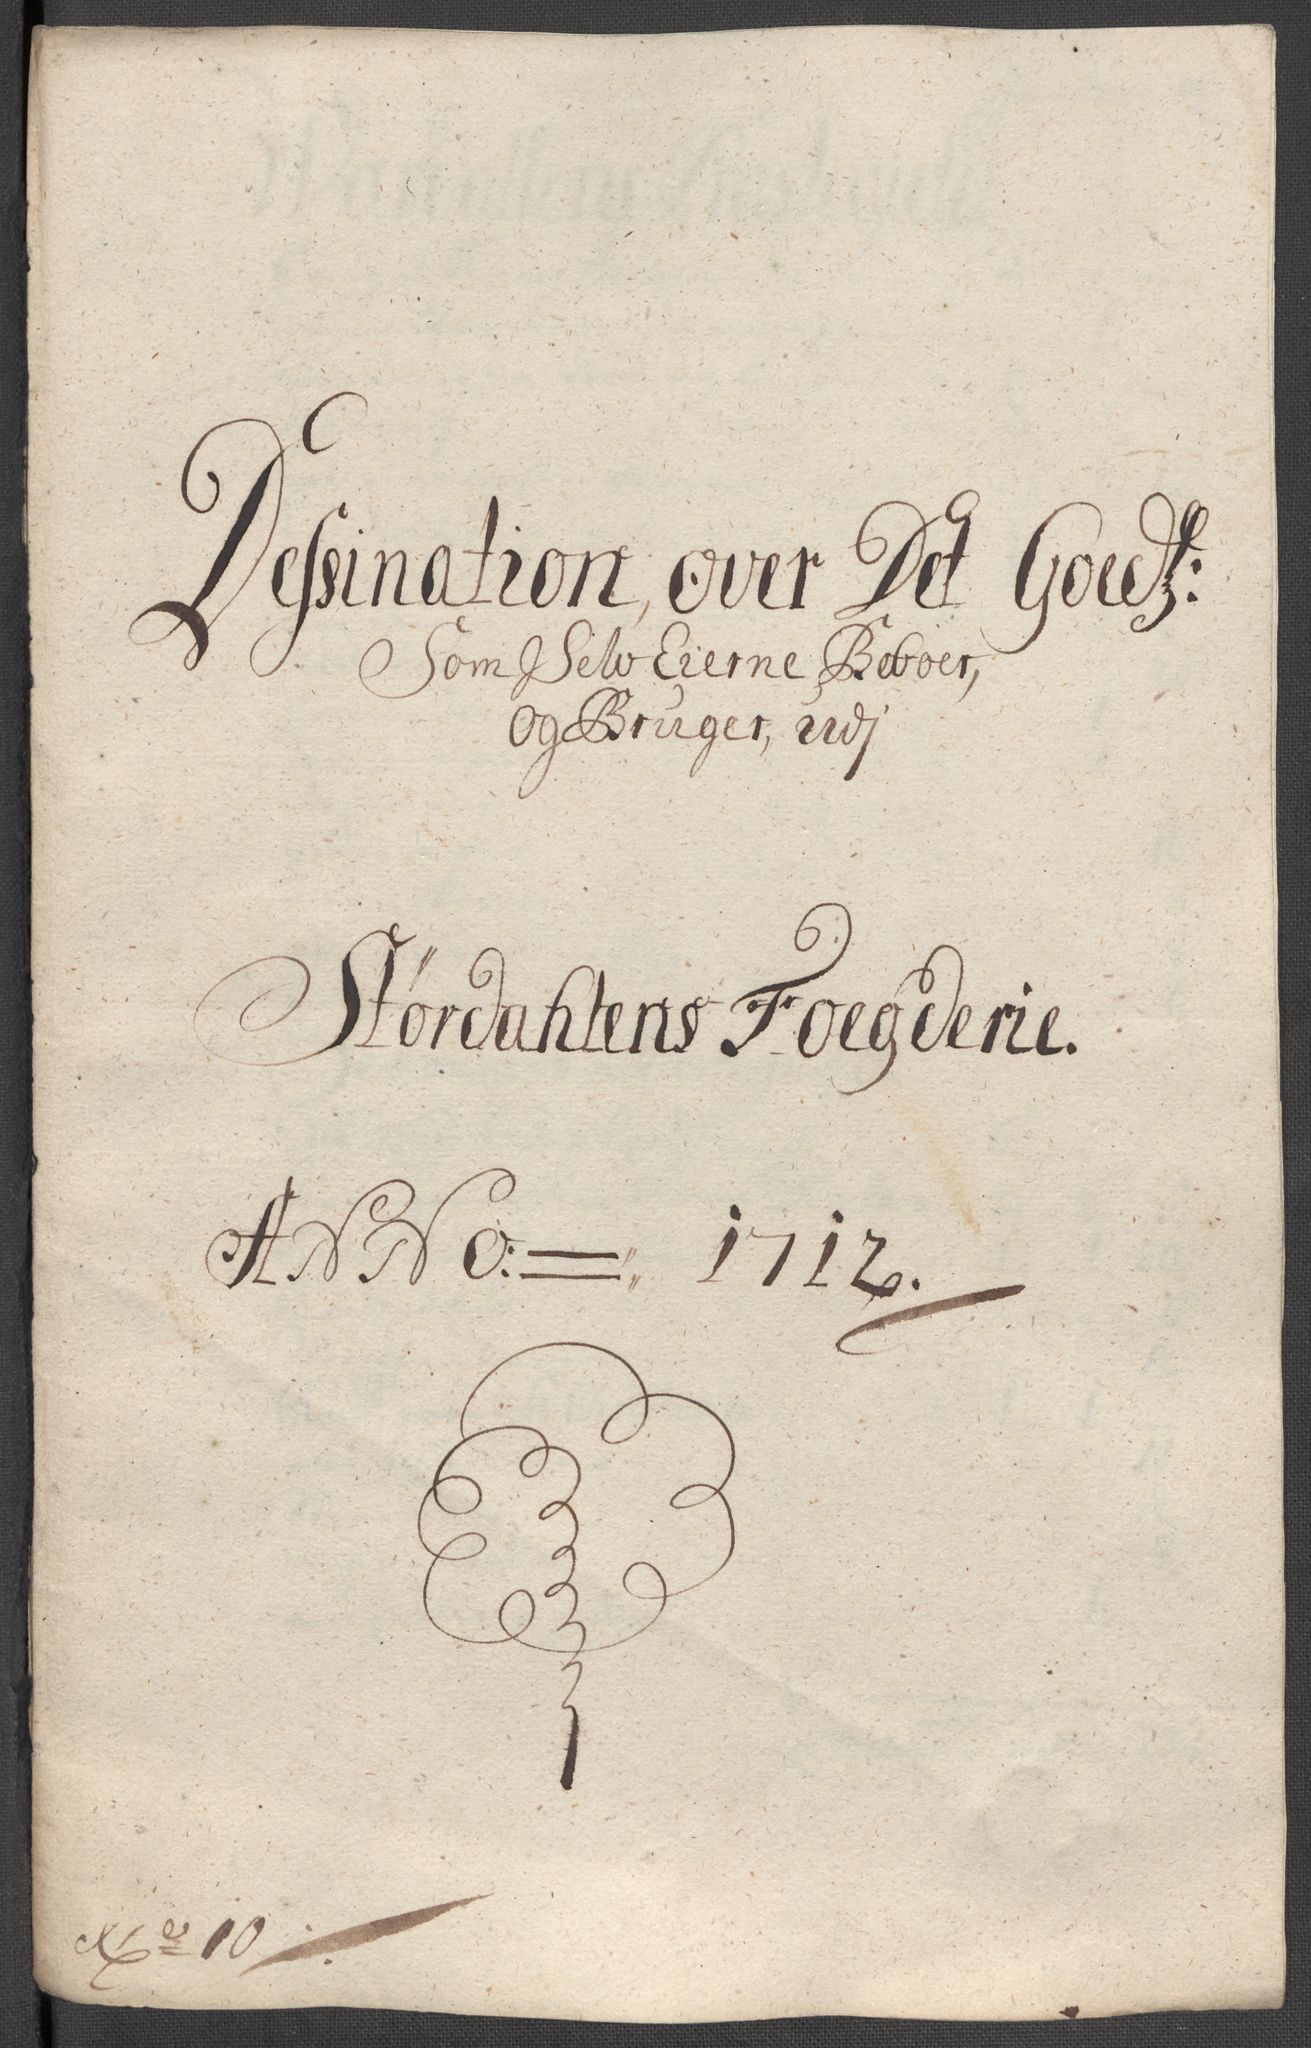 Dessination, over Det Goedz:
Som Selv Eierne Beboer,
Og Bruger, udj
Størdahlens Foegderie.
ANNO: = 1712.
No 10